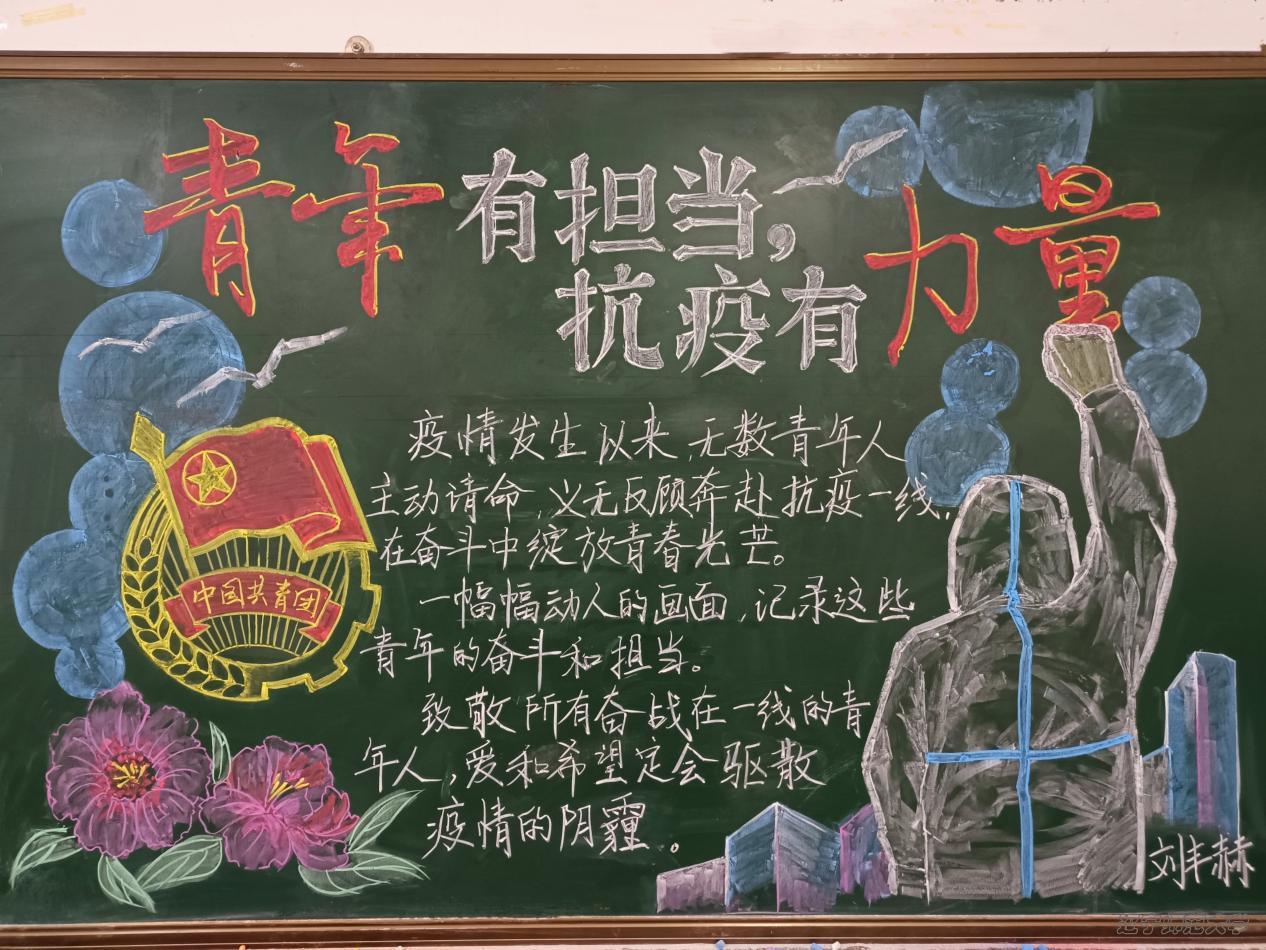 青年有担当,
抗疫有力量
疫情发生以来无数青年人
主动请命,义无反顾奔赴抗疫一线,
在奋斗中绽放青春光芒。
一幅幅动人的画面,记录这些
青年的奋斗和担当。
致敬所有奋战在一线的青
年人,爱和希望定会驱散
疫情的阴霾。
中国共青团
刘丰赫